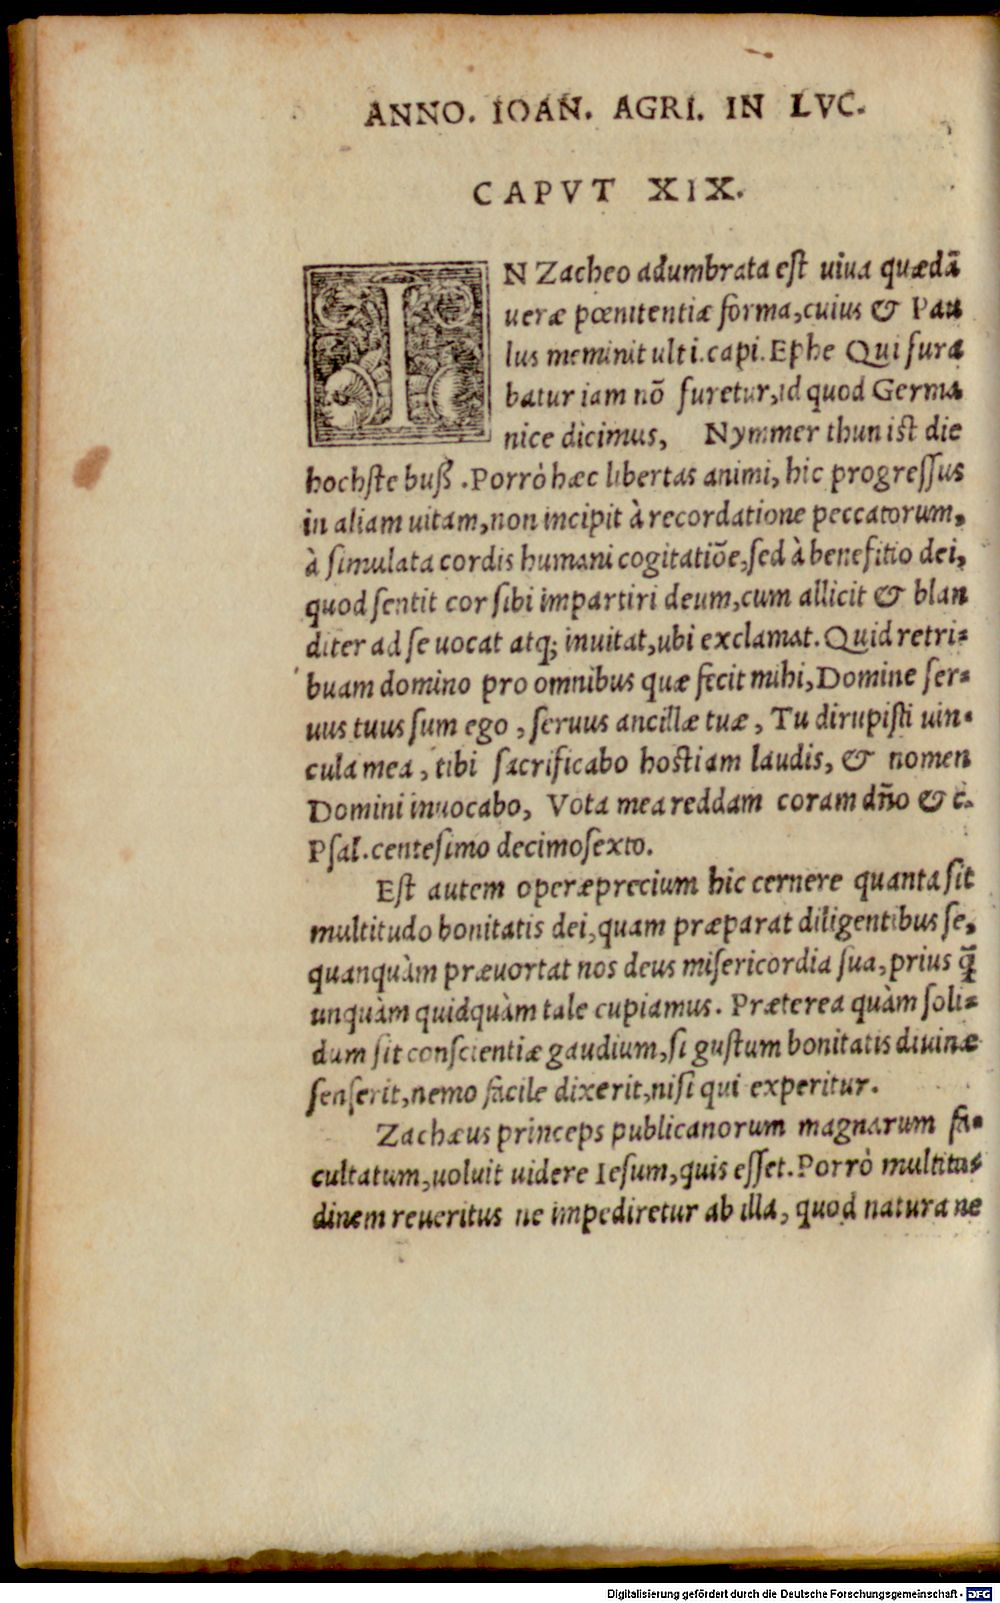 ANNO. IOAN. AGRI. IN LVC.
CAPVT XIX.
IN Zacheo adumbrata eſt uiua quædã
ueræ pœnitentiæ forma,cuius & Pau
lus meminit ulti.capi.Ephe Qui fura
batur iam nõ furetur,id quod Germa
nice dicimus, Nymmer thun iſt die
hochſte buß .Porrò hæc libertas animi, hic progreſſus
in aliam uitam,non incipit à recordatione peccatorum,
à ſimulata cordis humani cogitatiõe,ſed à benefitio dei,
quod ſentit cor ſibi impartiri deum,cum allicit & blan
diter ad ſe uocat atq; inuitat,ubi exclamat.Quid retri-
buam domino pro omnibus quæ fecit mihi,Domine ſer-
uus tuus ſum ego , ſeruus ancillæ tuæ , Tu dirupiſti uin-
cula mea , tibi ſacrificabo hoſtiam laudis, & nomen
Domini inuocabo, Vota mea reddam coram dño & c.
Pſal.centeſimo decimoſexto.
Eſt autem operæprecium hic cernere quanta ſit
multitudo bonitatis dei,quam præparat diligentibus ſe,
quanquàm præuortat nos deus miſericordia ſua,prius q̃
unquàm quidquàm tale cupiamus. Præterea quàm ſoli-
dum ſit conſcientiæ gaudium,ſi guſtum bonitatis diuinæ
ſenſerit,nemo facile dixerit,niſi qui experitur.
Zachæus princeps publicanorum magnarum fa-
cultatum,uoluit uidere Ieſum,quis eſſet.Porrò multitu-
dinem reueritus ne impediretur ab illa, quod natura ne
Digitalisierung gefördert durch die Deutsche Forschungsgemeinschaft - DFG